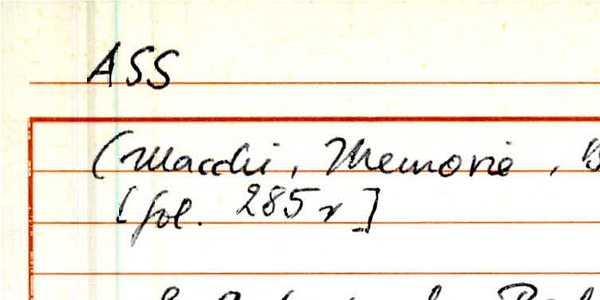 ASS
(Macchi, Memorie, B
[fol. 285r]